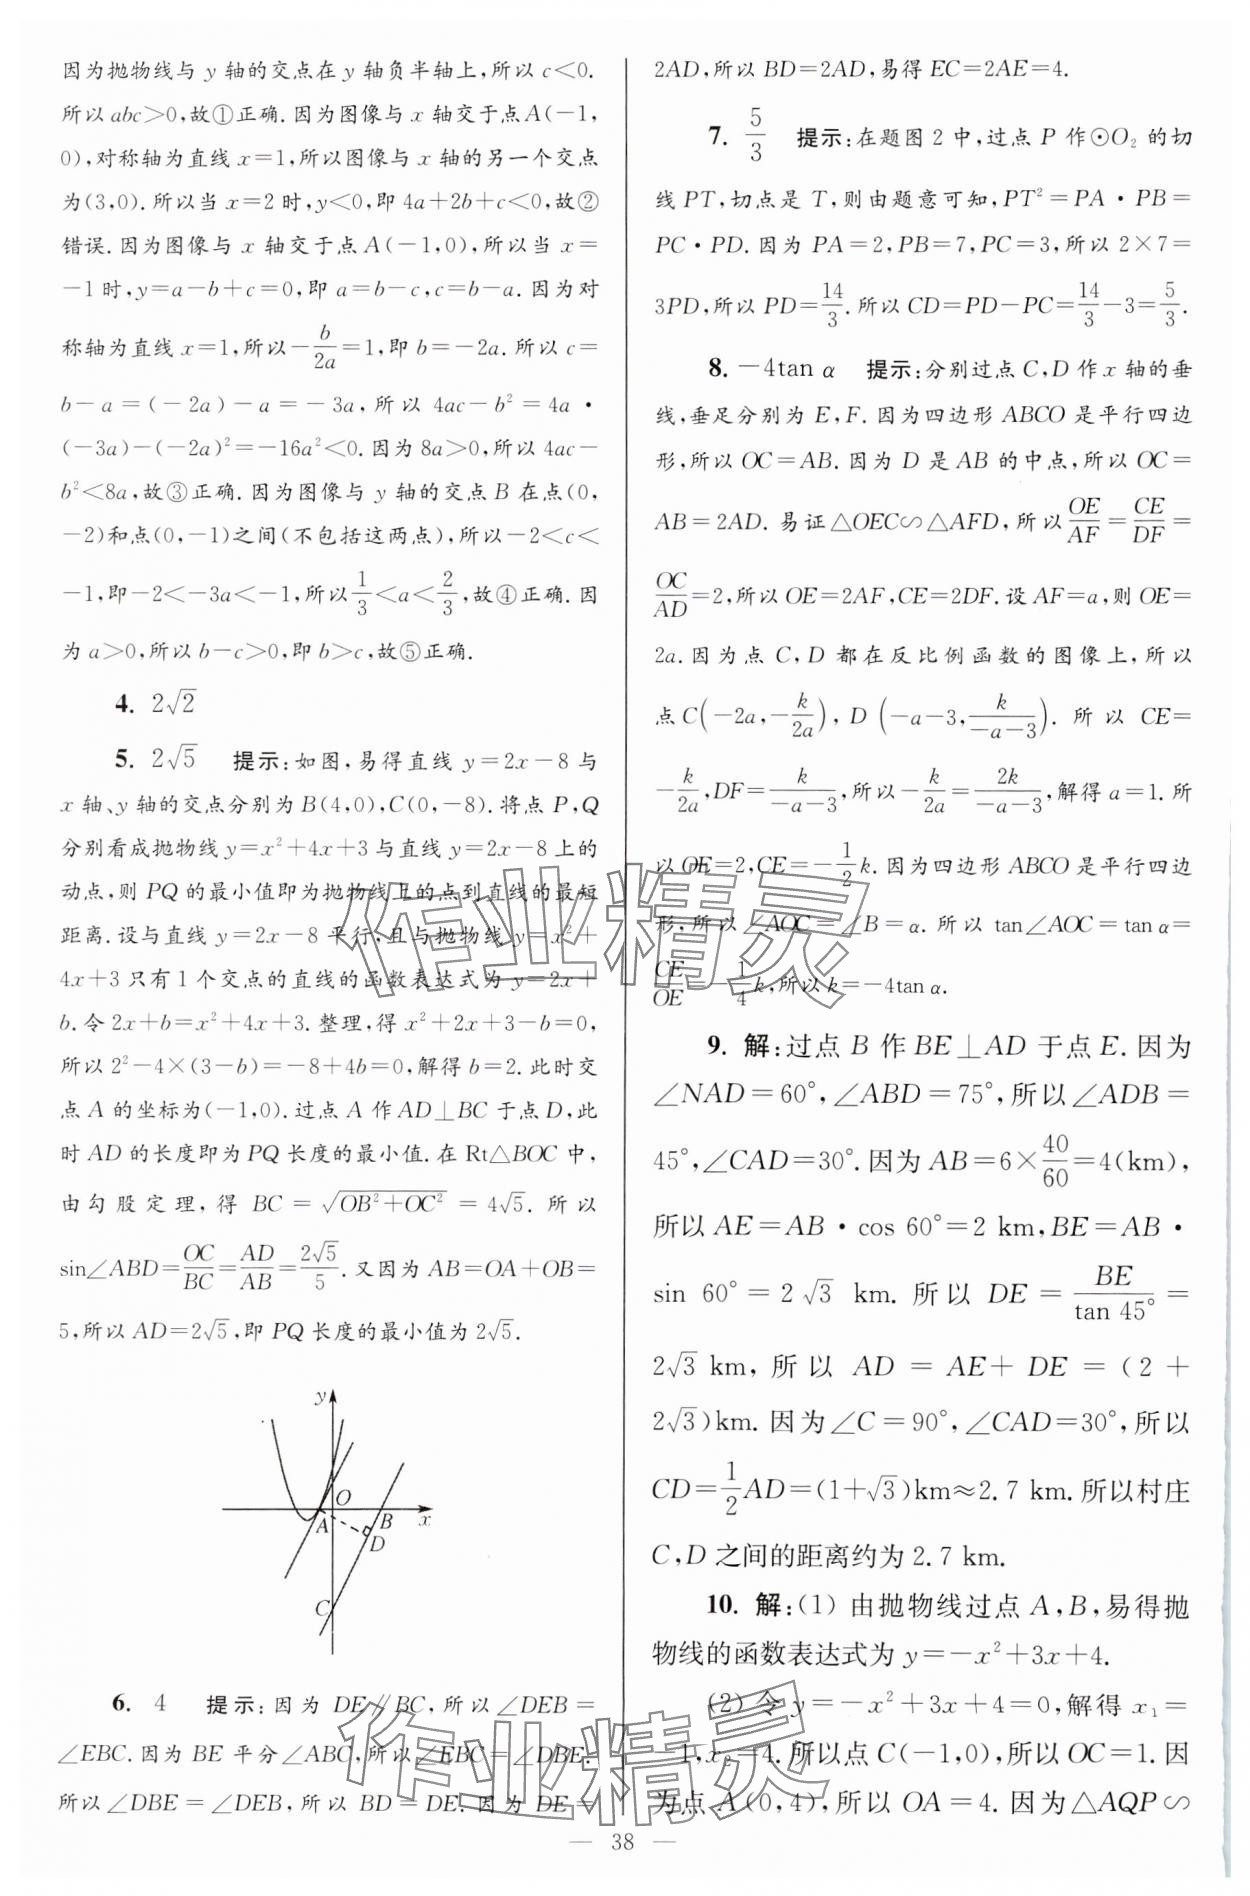 因为抛物线与 y 轴的交点在 y 轴负半轴上,所以 c<0.
所以 abc>0,故①正确.因为图像与 x 轴交于点A(-1,
0),对称轴为直线 x=1,所以图像与 x 轴的另一个交点
为(3,0).所以当 x=2 时,y<0,即 4a+2b+c<0,故②
错误.因为图像与 x 轴交于点A(-1,0),所以当 x=
-1时,y=a-b+c=0,即 a=b-c,c=b-a.因为对
称轴为直线 x=1,所以-b/2a=1,即 b=-2a.所以 c=
b-a=(-2a)-a=-3a,所以 4ac-b²=4a·
(-3a)-(-2a)²=-16a²<0.因为 8a>0,所以 4ac-
b²<8a,故③正确.因为图像与 y 轴的交点 B 在点(0,
-2)和点(0,-1)之间(不包括这两点),所以-2<c<
-1,即-2<-3a<-1,所以1/3<a<2/3,故④正确.因
为 a>0,所以 b-c>0,即 b>c,故⑤正确.
4. 2√2
5. 2√5 提示:如图,易得直线 y=2x-8 与
x 轴、y 轴的交点分别为 B(4,0),C(0,-8).将点 P,Q
分别看成抛物线 y=x²+4x+3 与直线 y=2x-8 上的
动点,则 PQ 的最小值即为抛物线上的点到直线的最短
距离.设与直线 y=2x-8 平行,且与抛物线 y=x²+
4x+3 只有 1 个交点的直线的函数表达式为 y=2x+
b.令 2x+b=x²+4x+3.整理,得 x²+2x+3-b=0,
所以 2²-4×(3-b)=-8+4b=0,解得 b=2.此时交
点 A 的坐标为(-1,0).过点 A 作 AD⊥BC 于点 D,此
时 AD 的长度即为 PQ 长度的最小值.在 Rt△BOC 中,
由勾股定理,得 BC=√(OB²+OC²)=4√5.所以
sin∠ABD=OC/BC=AD/AB=2√5/5.又因为 AB=OA+OB=
5,所以 AD=2√5,即 PQ 长度的最小值为 2√5.
y
O
A
B
x
D
C
6. 4 提示:因为 DE∥BC,所以∠DEB=
∠EBC.因为 BE 平分∠ABC,所以∠EBC=∠DBE.
所以∠DBE=∠DEB,所以 BD=DE.因为 DE=
2AD,所以 BD=2AD,易得 EC=2AE=4.
7. 5/3 提示:在题图 2 中,过点 P 作⊙O₂ 的切
线 PT,切点是 T,则由题意可知,PT²=PA·PB=
PC·PD.因为 PA=2,PB=7,PC=3,所以 2×7=
3PD,所以 PD=14/3.所以 CD=PD-PC=14/3-3=5/3.
8. -4tan α 提示:分别过点 C,D 作 x 轴的垂
线,垂足分别为 E,F.因为四边形 ABCO 是平行四边
形,所以 OC=AB.因为 D 是 AB 的中点,所以 OC=
AB=2AD.易证△OEC∽△AFD,所以OE/AF=CE/DF=
OC/AD=2,所以 OE=2AF,CE=2DF.设 AF=a,则 OE=
2a.因为点 C,D 都在反比例函数的图像上,所以
点C(-2a,-k/2a),D(-a-3,k/-a-3).所以 CE=
-k/2a,DF=k/-a-3,所以-k/2a=2k/-a-3,解得 a=1.所
以 OE=2,CE=-1/2k.因为四边形 ABCO 是平行四边
形,所以∠AOC=∠B=α.所以 tan∠AOC=tan α=
CE/OE=-1/4k,所以 k=-4tan α.
9. 解:过点 B 作 BE⊥AD 于点 E.因为
∠NAD=60°,∠ABD=75°,所以∠ADB=
45°,∠CAD=30°.因为 AB=6×40/60=4(km),
所以 AE=AB·cos 60°=2 km,BE=AB·
sin 60°=2√3 km.所以 DE=BE/tan 45°=
2√3 km,所以 AD=AE+DE=(2+
2√3)km.因为∠C=90°,∠CAD=30°,所以
CD=1/2AD=(1+√3)km≈2.7 km.所以村庄
C,D 之间的距离约为 2.7 km.
10. 解:(1) 由抛物线过点 A,B,易得抛
物线的函数表达式为 y=-x²+3x+4.
(2) 令 y=-x²+3x+4=0,解得 x₁=
-1,x₂=4.所以点 C(-1,0),所以 OC=1.因
为点 A(0,4),所以 OA=4.因为△AQP∽
— 38 —
作业精灵
作业精灵